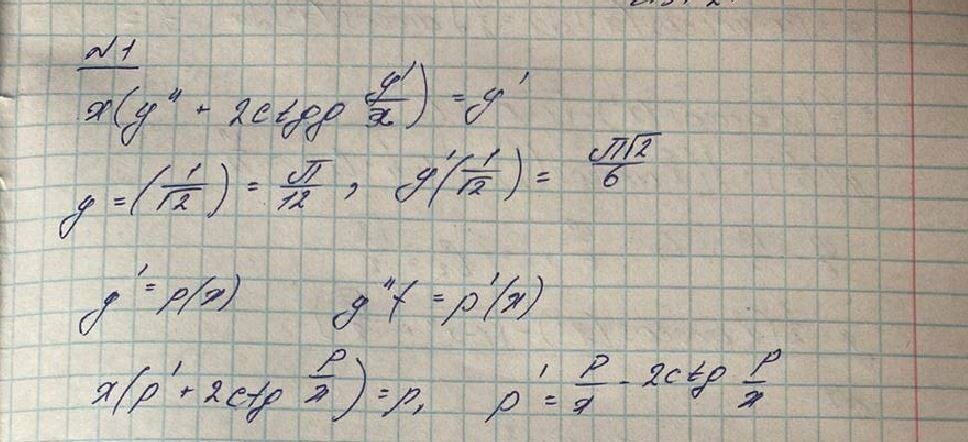 №1
x(y" + 2ctgg y'/x) = y'
y = (1/√2) = π/12, y'(1/√2) = π√2/6
y' = p(x) y" = p'(x)
x(p' + 2ctg p/x) = p, p' = p/x - 2ctg p/x